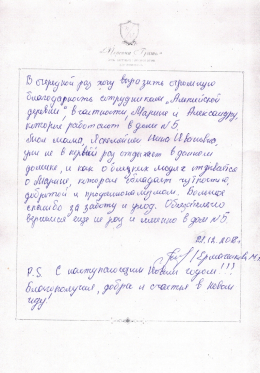 В очередной раз хочу выразить огромную
благодарность сотрудникам "Альпийской
деревни", в частности, Марине и Александру,
которые работают в доме N5.
Моя мама, Нина Ивановна,
уже не в первый раз отдыхает в данном
домике, и как о близких людях отзывается
о Марине, которая обладает чуткостью,
добротой и профессионализмом. Большое
спасибо за заботу и уход. Обязательно
вернемся еще не раз и именно в дом N5
21.12.2018г.
P.S. С наступающим Новым годом!!!
Благополучия, добра и счастья в Новом
году!